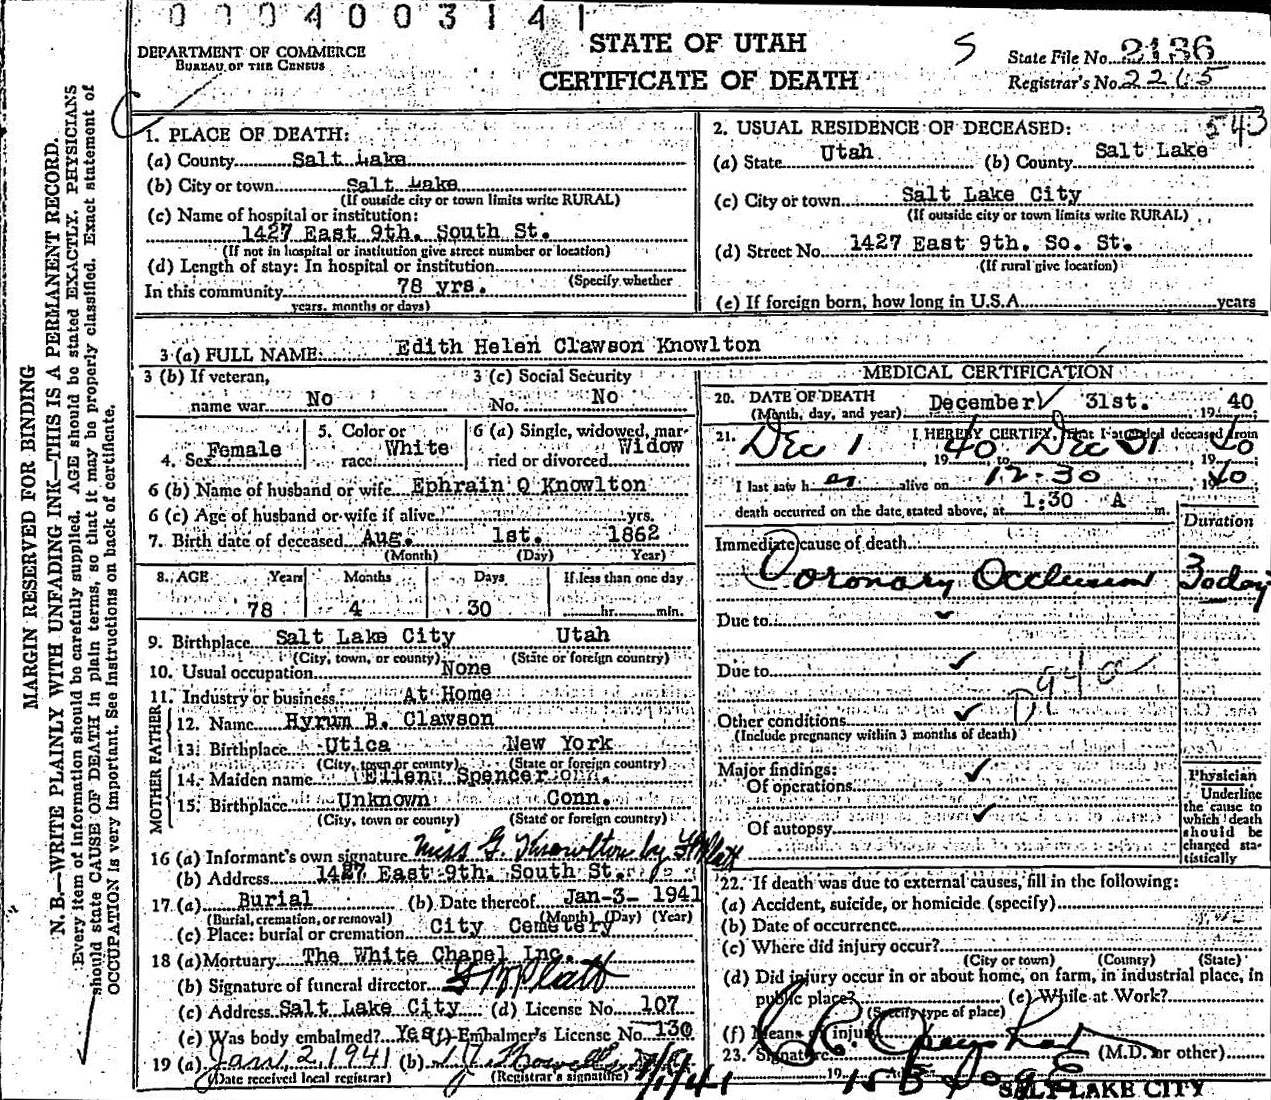 0004003141
DEPARTMENT OF COMMERCE
BUREAU OF THE CENSUS
STATE OF UTAH
CERTIFICATE OF DEATH
S
State File No. 2136
Registrar's No. 2265
543
MARGIN RESERVED FOR BINDING
N. B.—WRITE PLAINLY WITH UNFADING INK—THIS IS A PERMANENT RECORD.
Every item of information should be carefully supplied. AGE should be stated EXACTLY. PHYSICIANS
should state CAUSE OF DEATH in plain terms, so that it may be properly classified. Exact statement of
OCCUPATION is very important. See instructions on back of certificate.
1. PLACE OF DEATH:
(a) County Salt Lake
(b) City or town Salt Lake
(If outside city or town limits write RURAL)
(c) Name of hospital or institution:
1427 East 9th. South St.
(If not in hospital or institution give street number or location)
(d) Length of stay: In hospital or institution
(Specify whether
In this community 78 yrs.
years, months or days)
2. USUAL RESIDENCE OF DECEASED:
(a) State Utah (b) County Salt Lake
(c) City or town Salt Lake City
(If outside city or town limits write RURAL)
(d) Street No. 1427 East 9th. So. St.
(If rural give location)
(e) If foreign born, how long in U.S.A. years
3 (a) FULL NAME: Edith Helen Clawson Knowlton
3 (b) If veteran, name war No
3 (c) Social Security No. No
4. Sex Female
5. Color or race White
6 (a) Single, widowed, married or divorced Widow
6 (b) Name of husband or wife Ephrain Q Knowlton
6 (c) Age of husband or wife if alive yrs.
7. Birth date of deceased Aug. 1st. 1862
(Month) (Day) Year)
8. AGE Years Months Days If less than one day
78 4 30 hr. min.
9. Birthplace Salt Lake City Utah
(City, town, or county) (State or foreign country)
10. Usual occupation None
11. Industry or business At Home
FATHER
12. Name Hyrum B. Clawson
13. Birthplace Utica New York
(City, town or county) (State or foreign country)
MOTHER
14. Maiden name Ellen Spencer
15. Birthplace Unknown Conn.
(City, town or county) (State or foreign country)
16 (a) Informant's own signature Miss G. Knowlton by
(b) Address 1427 East 9th. South St.
17 (a) Burial (b) Date thereof Jan-3- 1941
(Burial, cremation, or removal) (Month) (Day) (Year)
(c) Place: burial or cremation City Cemetery
18 (a) Mortuary The White Chapel Inc.
(b) Signature of funeral director
(c) Address Salt Lake City (d) License No. 107
(e) Was body embalmed? Yes (f) Embalmer's License No. 130
19 (a) Jan. 2, 1941 (b)
(Date received local registrar) (Registrar's signature)
MEDICAL CERTIFICATION
20. DATE OF DEATH
(Month, day, and year) December 31st. , 19 40
21. I HEREBY CERTIFY, That I attended deceased from
Dec 1 , 19 40, to Dec 31 , 19 40
I last saw her alive on 12:30 , 19 40
death occurred on the date stated above, at 1:30 A m.
Duration
Immediate cause of death
Coronary Occlusion
Due to
Due to
D940
Other conditions
(Include pregnancy within 3 months of death)
Major findings:
Of operations
Of autopsy
Physician
Underline
the cause to
which death
should be
charged sta-
tistically
22. If death was due to external causes, fill in the following:
(a) Accident, suicide, or homicide (specify)
(b) Date of occurrence
(c) Where did injury occur?
(City or town) (County) (State)
(d) Did injury occur in or about home, on farm, in industrial place, in
public place? (e) While at Work?
(Specify type of place)
(f) Means of injury
23. Signature (M.D. or other)
19
SALT LAKE CITY